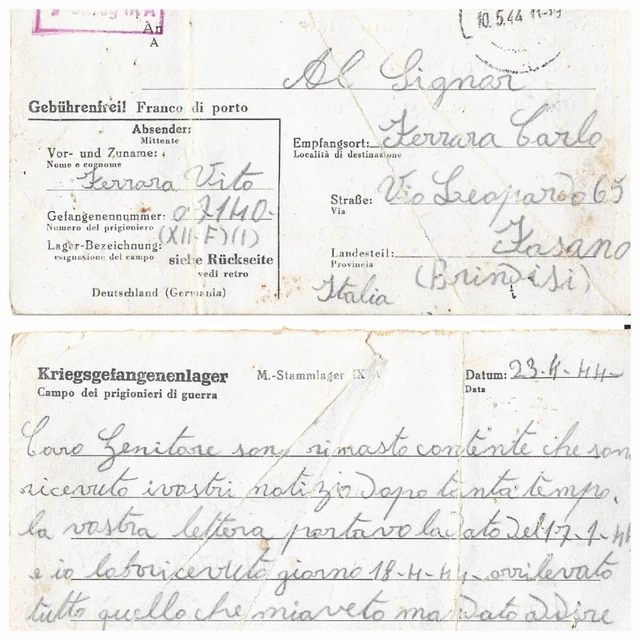 An
A
10.5.44
Al Signor
Gebührenfrei! Franco di porto
Absender:
Mittente
Vor- und Zuname:
Nome e cognome
Ferrara Vito
Gefangenennummer: 07140-
Numero del prigioniero (XII-F)(1)
Lager-Bezeichnung:
esignazione del campo siehe Rückseite
vedi retro
Deutschland (Germania)
Empfangsort: Ferrara Carlo
Località di destinazione
Straße: Via Leopardo 65
Via
Landesteil: Fasano
Provincia (Brindisi)
Italia
Kriegsgefangenenlager M.-Stammlager IX A
Campo dei prigionieri di guerra
Datum: 23-4-44-
Data
Caro Genitore son rimasto contente che son
ricevuto ivostri notizio dopo tanta tempo.
la vostra lettera portavo la dato del 17-1-44
e io labo ricevuto giorno 18-4-44- orrilevato
tutto quello che miaveto mandato addire